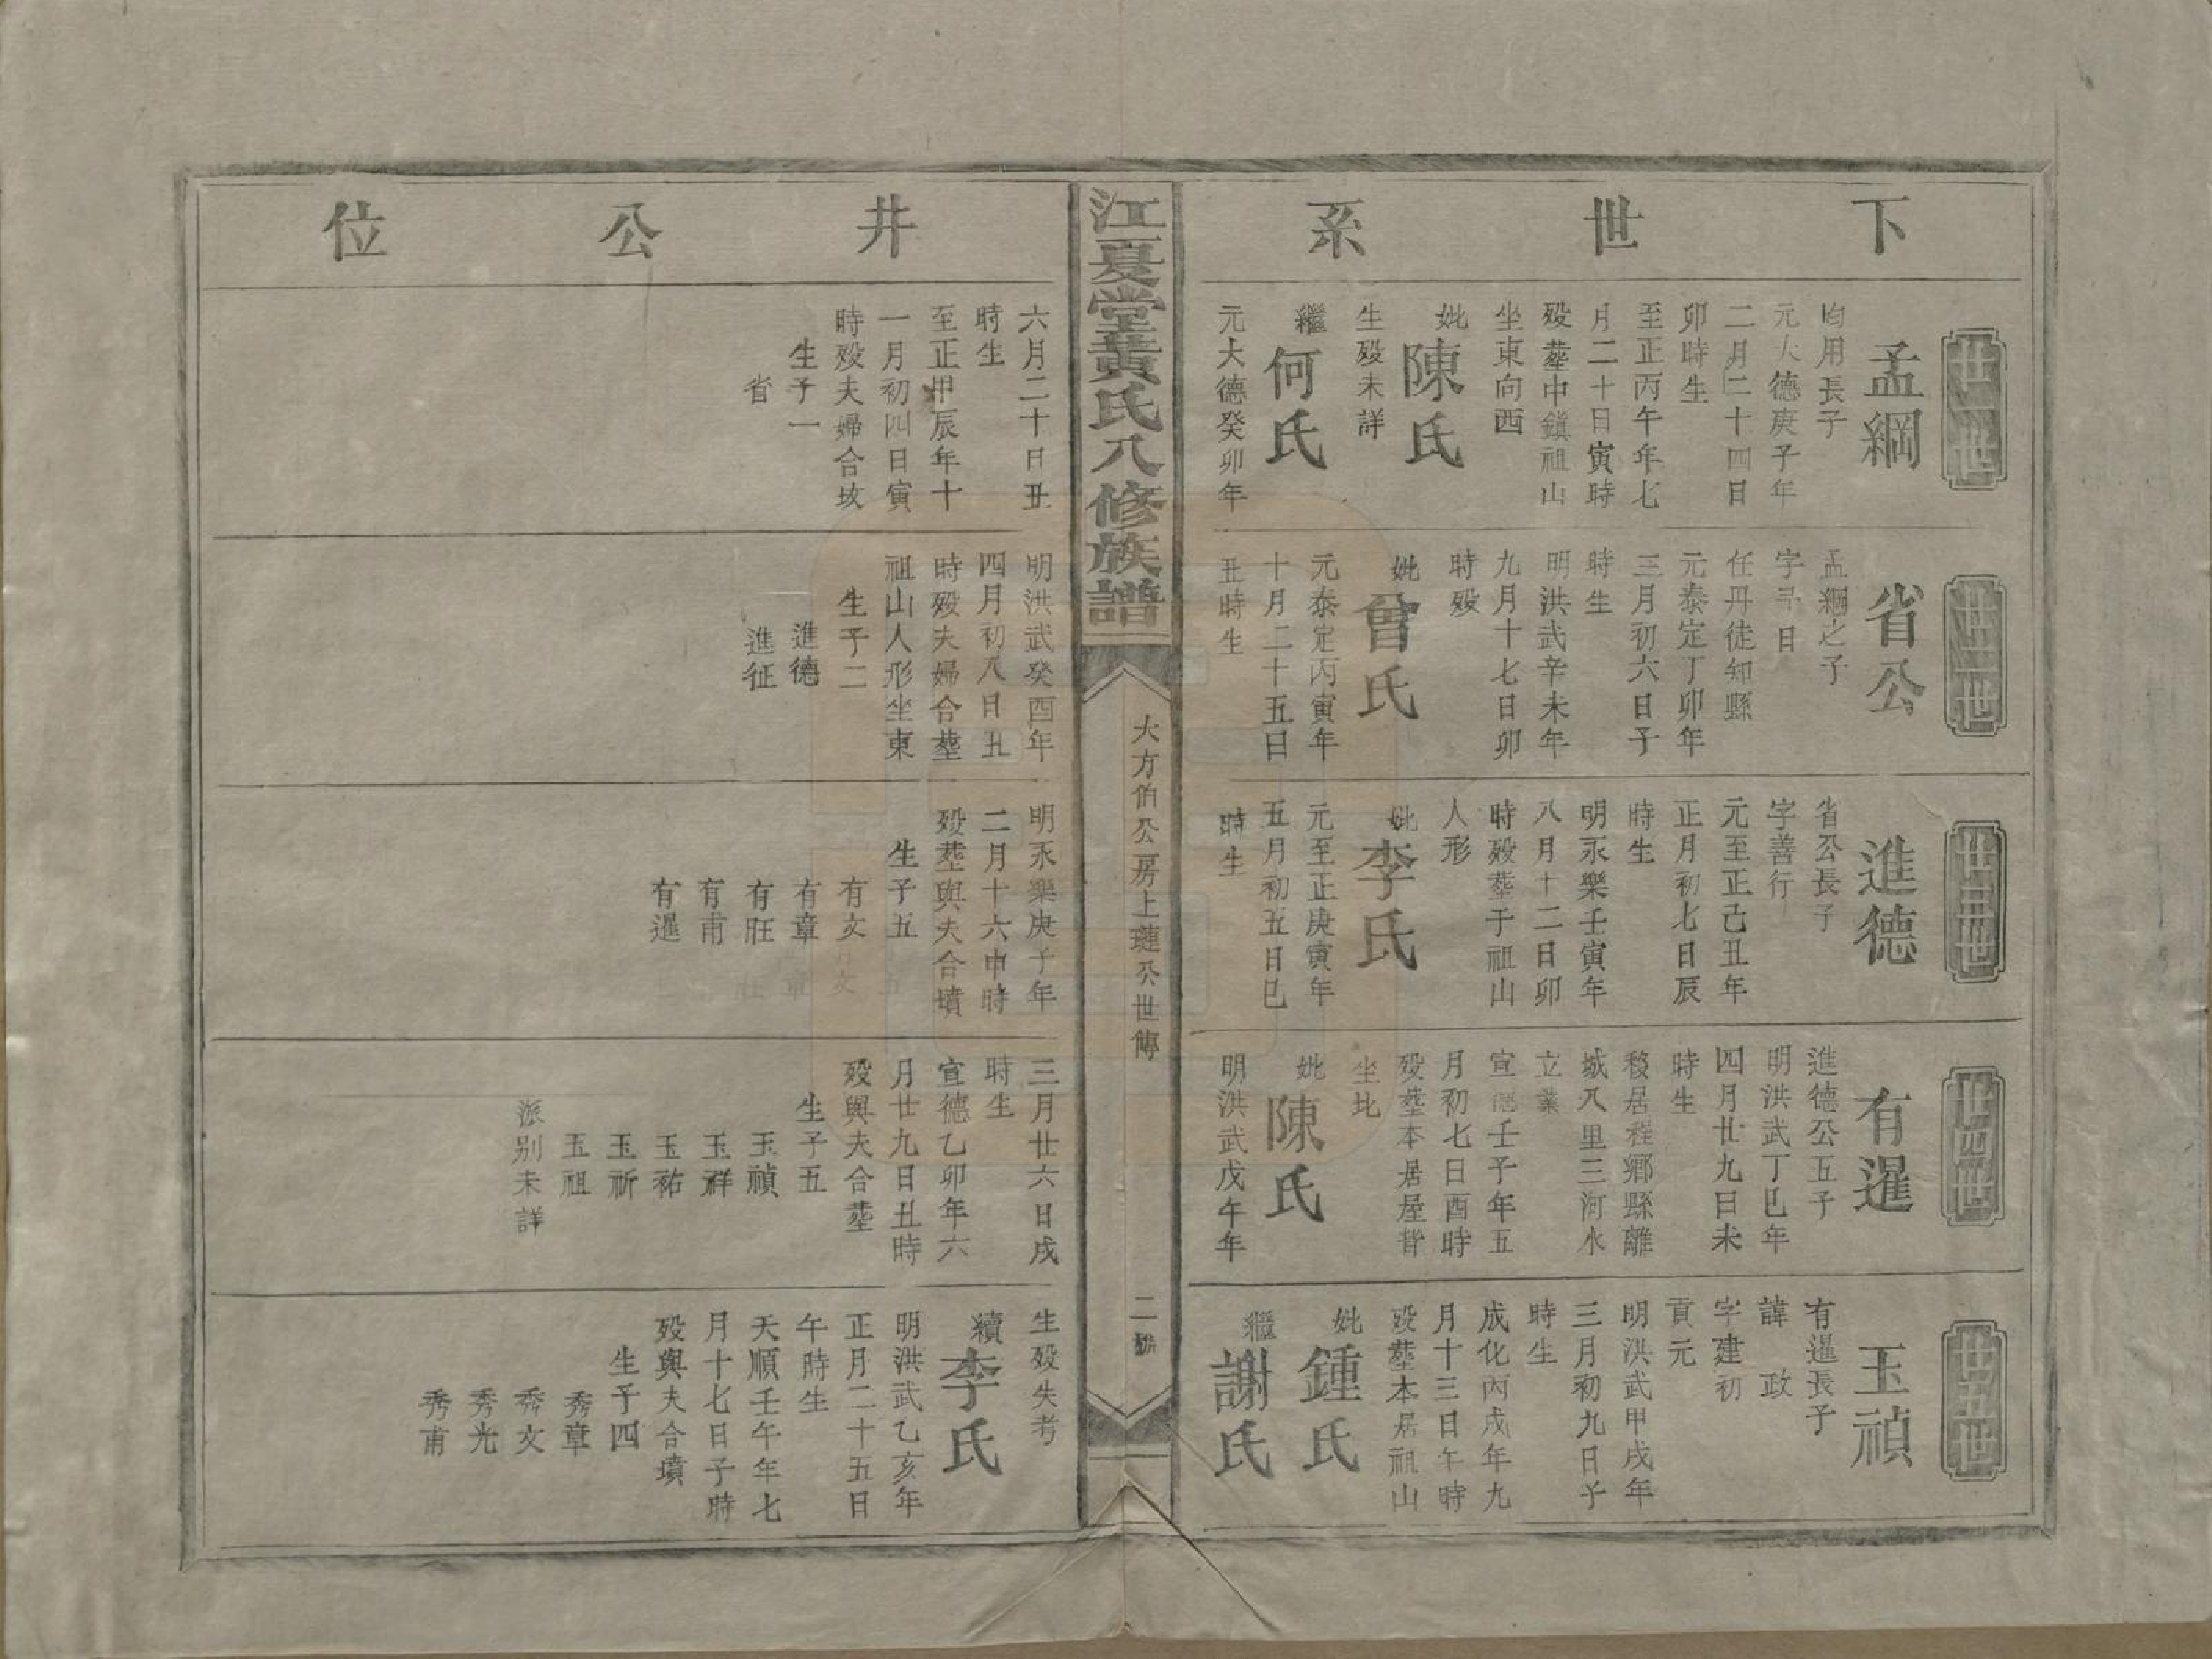 下世系
世一世
孟綱
均用長子
元大德庚子年
二月二十四日
卯時生
至正丙午年七
月二十日寅時
歿塟中鎮祖山
坐東向西
妣陳氏
生歿未詳
繼何氏
元大德癸卯年
世二世
省公
孟綱之子
任丹徒知縣
元泰定丁卯年
三月初六日子
時生
明洪武辛未年
九月十七日卯
時歿
妣曾氏
元泰定丙寅年
十月二十五日
丑時生
世三世
進德
省公長子
字善行
元至正己丑年
正月初七日辰
時生
明永樂壬寅年
八月十二日卯
時歿塟于祖山
人形
妣李氏
元至正庚寅年
五月初五日巳
時生
世四世
有暹
進德公五子
明洪武丁巳年
四月廿九日未
時生
移居程鄉縣離
城八里三河水
立業
宣德壬子年五
月初七日酉時
歿塟本居屋背
坐北
妣陳氏
明洪武戊午年
世五世
玉禎
有暹長子
諱政
字建初
貢元
明洪武甲戌年
三月初九日子
時生
成化丙戌年九
月十三日午時
歿塟本居祖山
妣鍾氏
繼謝氏
江夏堂黃氏八修族譜
大方伯公房上璉公世傳
二
井公位
六月二十日丑
時生
至正甲辰年十
一月初四日寅
時歿夫婦合坟
生子一
省
明洪武癸酉年
四月初八日丑
時歿夫婦合塟
祖山人形坐東
生子二
進德
進征
明永樂庚子年
二月十六申時
歿塟與夫合墳
生子五
有文
有章
有旺
有甫
有暹
三月廿六日戌
時生
宣德乙卯年六
月廿九日丑時
歿與夫合塟
生子五
玉禎
玉祥
玉祐
玉祈
玉祖
派別未詳
生歿失考
續李氏
明洪武乙亥年
正月二十五日
午時生
天順壬午年七
月十七日子時
歿與夫合墳
生子四
秀章
秀文
秀光
秀甫